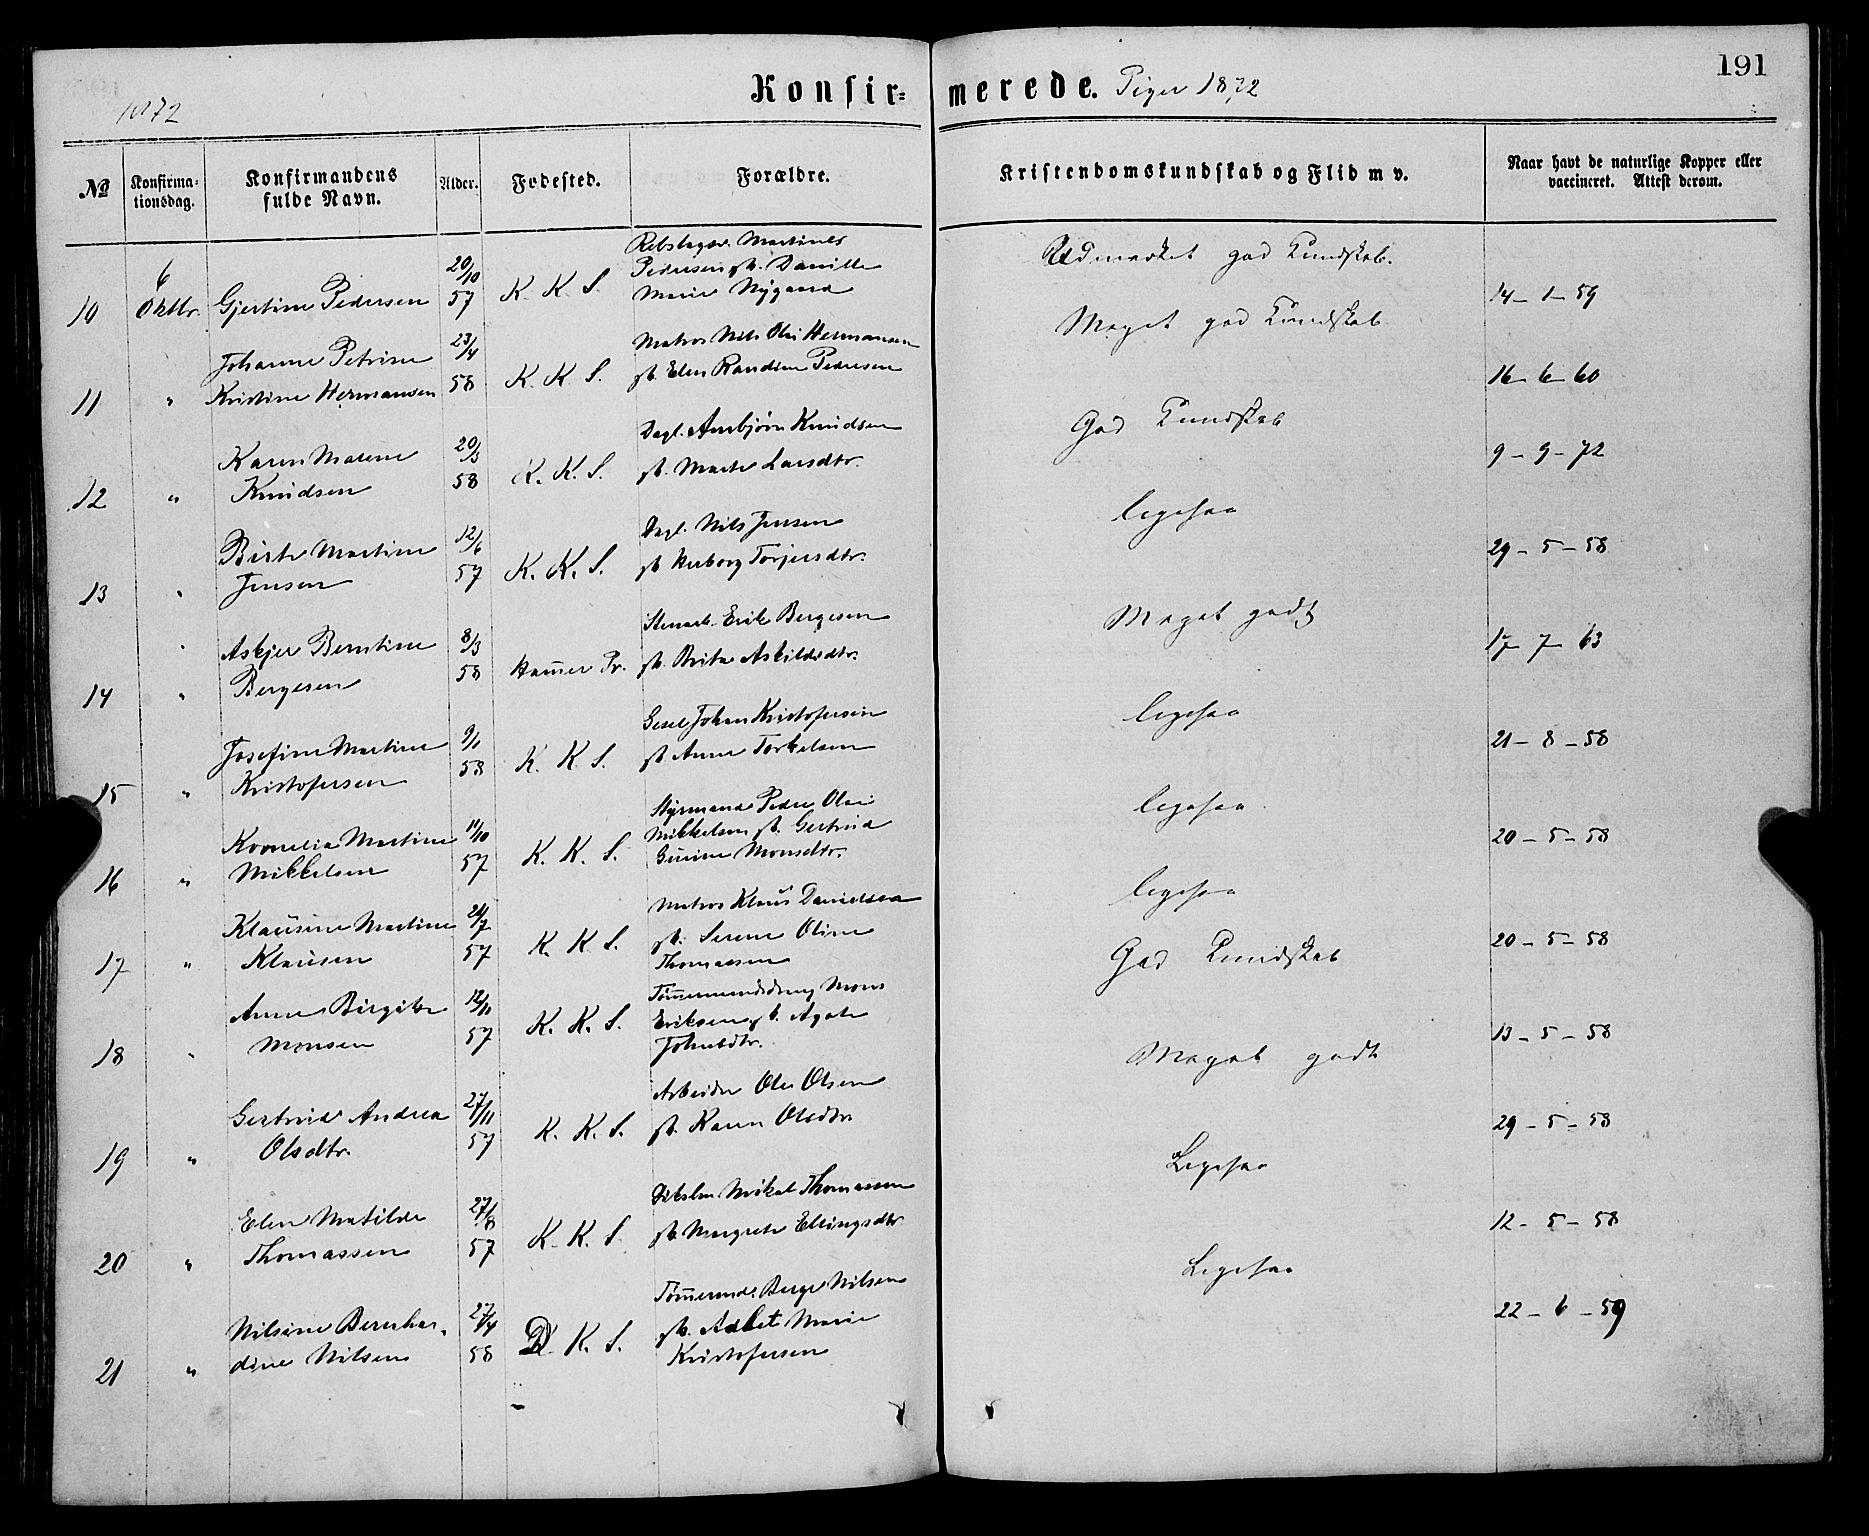 191
1872
Konfir=merede. Piger 1872
№ Konfirma=tionsdag. Konfirmandens fulde Navn. Alder. Fødested. Forældre. Kristendomskundskab og Flid m v. Naar havt de naturlige Kopper eller vaccineret. Attest derom.
Rebslager Martines
20/10 Pedersen og h. Danille Udmærket god Kundskab.
10 6 Oktbr. Gjertine Pedersen 57 K. K. S. Marie Nygaard 14-1-59
Johanne Petrine 23/4 Matros Nils Olai Hermansen Meget god Kundskab
11 " Kristine Hermansen 58 K. K. S. og h. Elen Randine Pedersen 16-6-60
Karen Malene 20/3 Dagl. Ambjørn Knudsen God Kundskab
12 " Knudsen 58 K. K. S. og h. Marte Larsdtr. 9-9-72
Birte Martine 12/6 Dagl. Nils Jensen ligesaa
13 " Jensen 57 K. K. S. og h. Herborg Torjersdtr. 29-5-58
Askjer Berntine 8/3 Erik Bergesen Meget godt
14 " Bergesen 58 Hammer Pr. og h. Brita Askildsdtr. 17-7-63
Josefine Martine 9/1 Johan Kristofersen ligesaa
15 " Kristofersen 58 K. K. S. og h. Anne Torkelsen 21-8-58
Styrmand Peder Olai
Kornelia Martine 11/10 Mikkelsen og h. Gertrud ligesaa
16 " Mikkelsen 57 K. K. S. Gurine Monsdtr. 20-5-58
Klausine Martine 24/7 Matros Klaus Danielsen ligesaa
17 " Klausen 57 K. K. S. og h. Serene Oline Thomassen 20-5-58
Anne Birgitte 12/11 Tømmermandsdreng Mons God Kundskab
18 " Monsen 57 K. K. S. Eriksen og h. Agate Johnsdtr. 13-5-58
Gertrud Andrea 27/11 Arbeider Ole Olsen Meget godt
19 " Olsdtr. 57 K. K. S. og h. Karen Olsdtr 29-5-58
Elen Matilde 27/8 Mikal Thomassen Ligesaa
20 " Thomassen 57 K. K. S. og h. Margrete Ellingsdtr 12-5-58
Nilsine Bernhar- 27/4 Tømmermd. Berge Nilsen Ligesaa
21 " dine Nilsen 58 D. K. S. og h. Adlet Marie Kristofersen 22-6-59